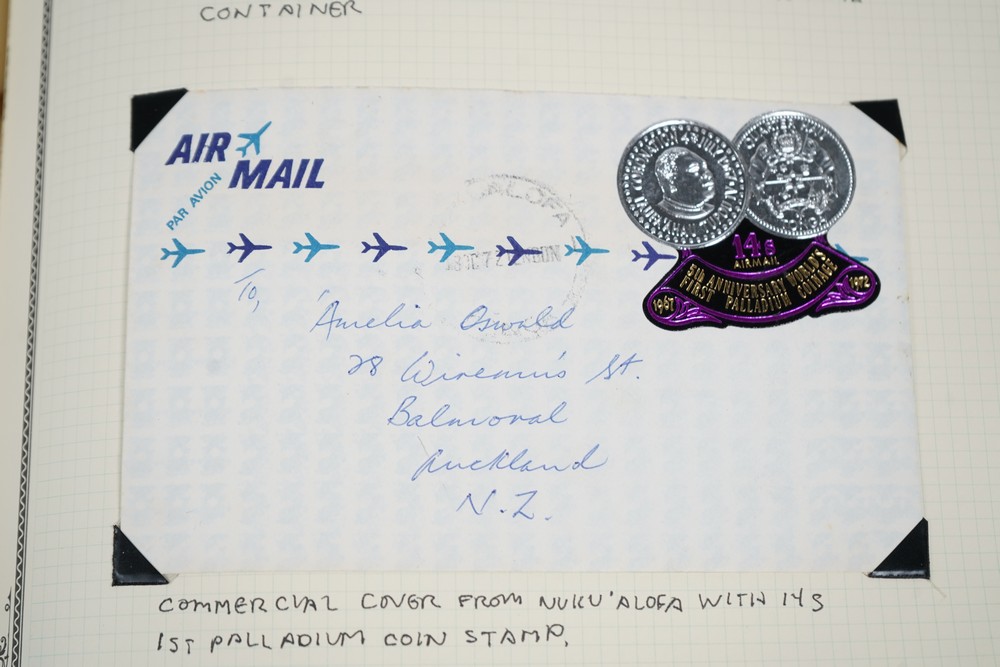 CONTAINER
AIR
MAIL
PAR AVION
14s
AIRMAIL
5TH ANNIVERSARY WORLD'S
FIRST PALLADIUM COINAGE
1967
1972
ALOFA
To,
Amelia Oswald
28 St.
Balmoral
Auckland
N.Z.
COMMERCIAL COVER FROM NUKU'ALOFA WITH 14S
1ST PALLADIUM COIN STAMP.